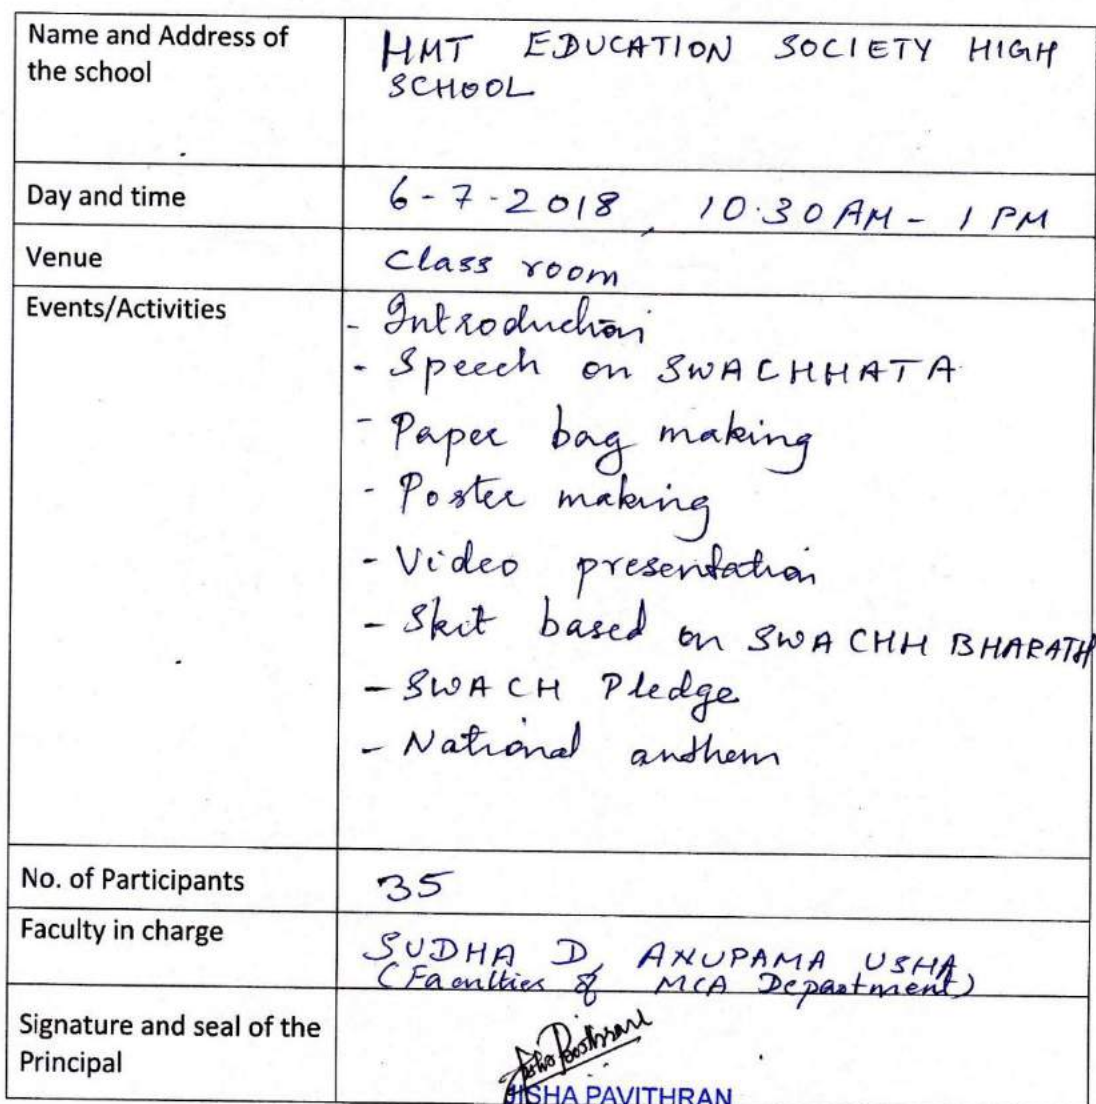 Name and Address of
the school
HMT EDUCATION SOCIETY HIGH
SCHOOL
Day and time
6-7-2018, 10.30 AM - 1 PM
Venue
Class room
Events/Activities
- Introduction
- Speech on SWACHHATA
- Paper bag making
- Poster making
- Video presentation
- Skit based on SWACHH BHARATH
- SWACH Pledge
- National anthem
No. of Participants
35
Faculty in charge
SUDHA D, ANUPAMA USHA
(Faculties of MCA Department)
Signature and seal of the
Principal
Jisha Pavithran
JISHA PAVITHRAN